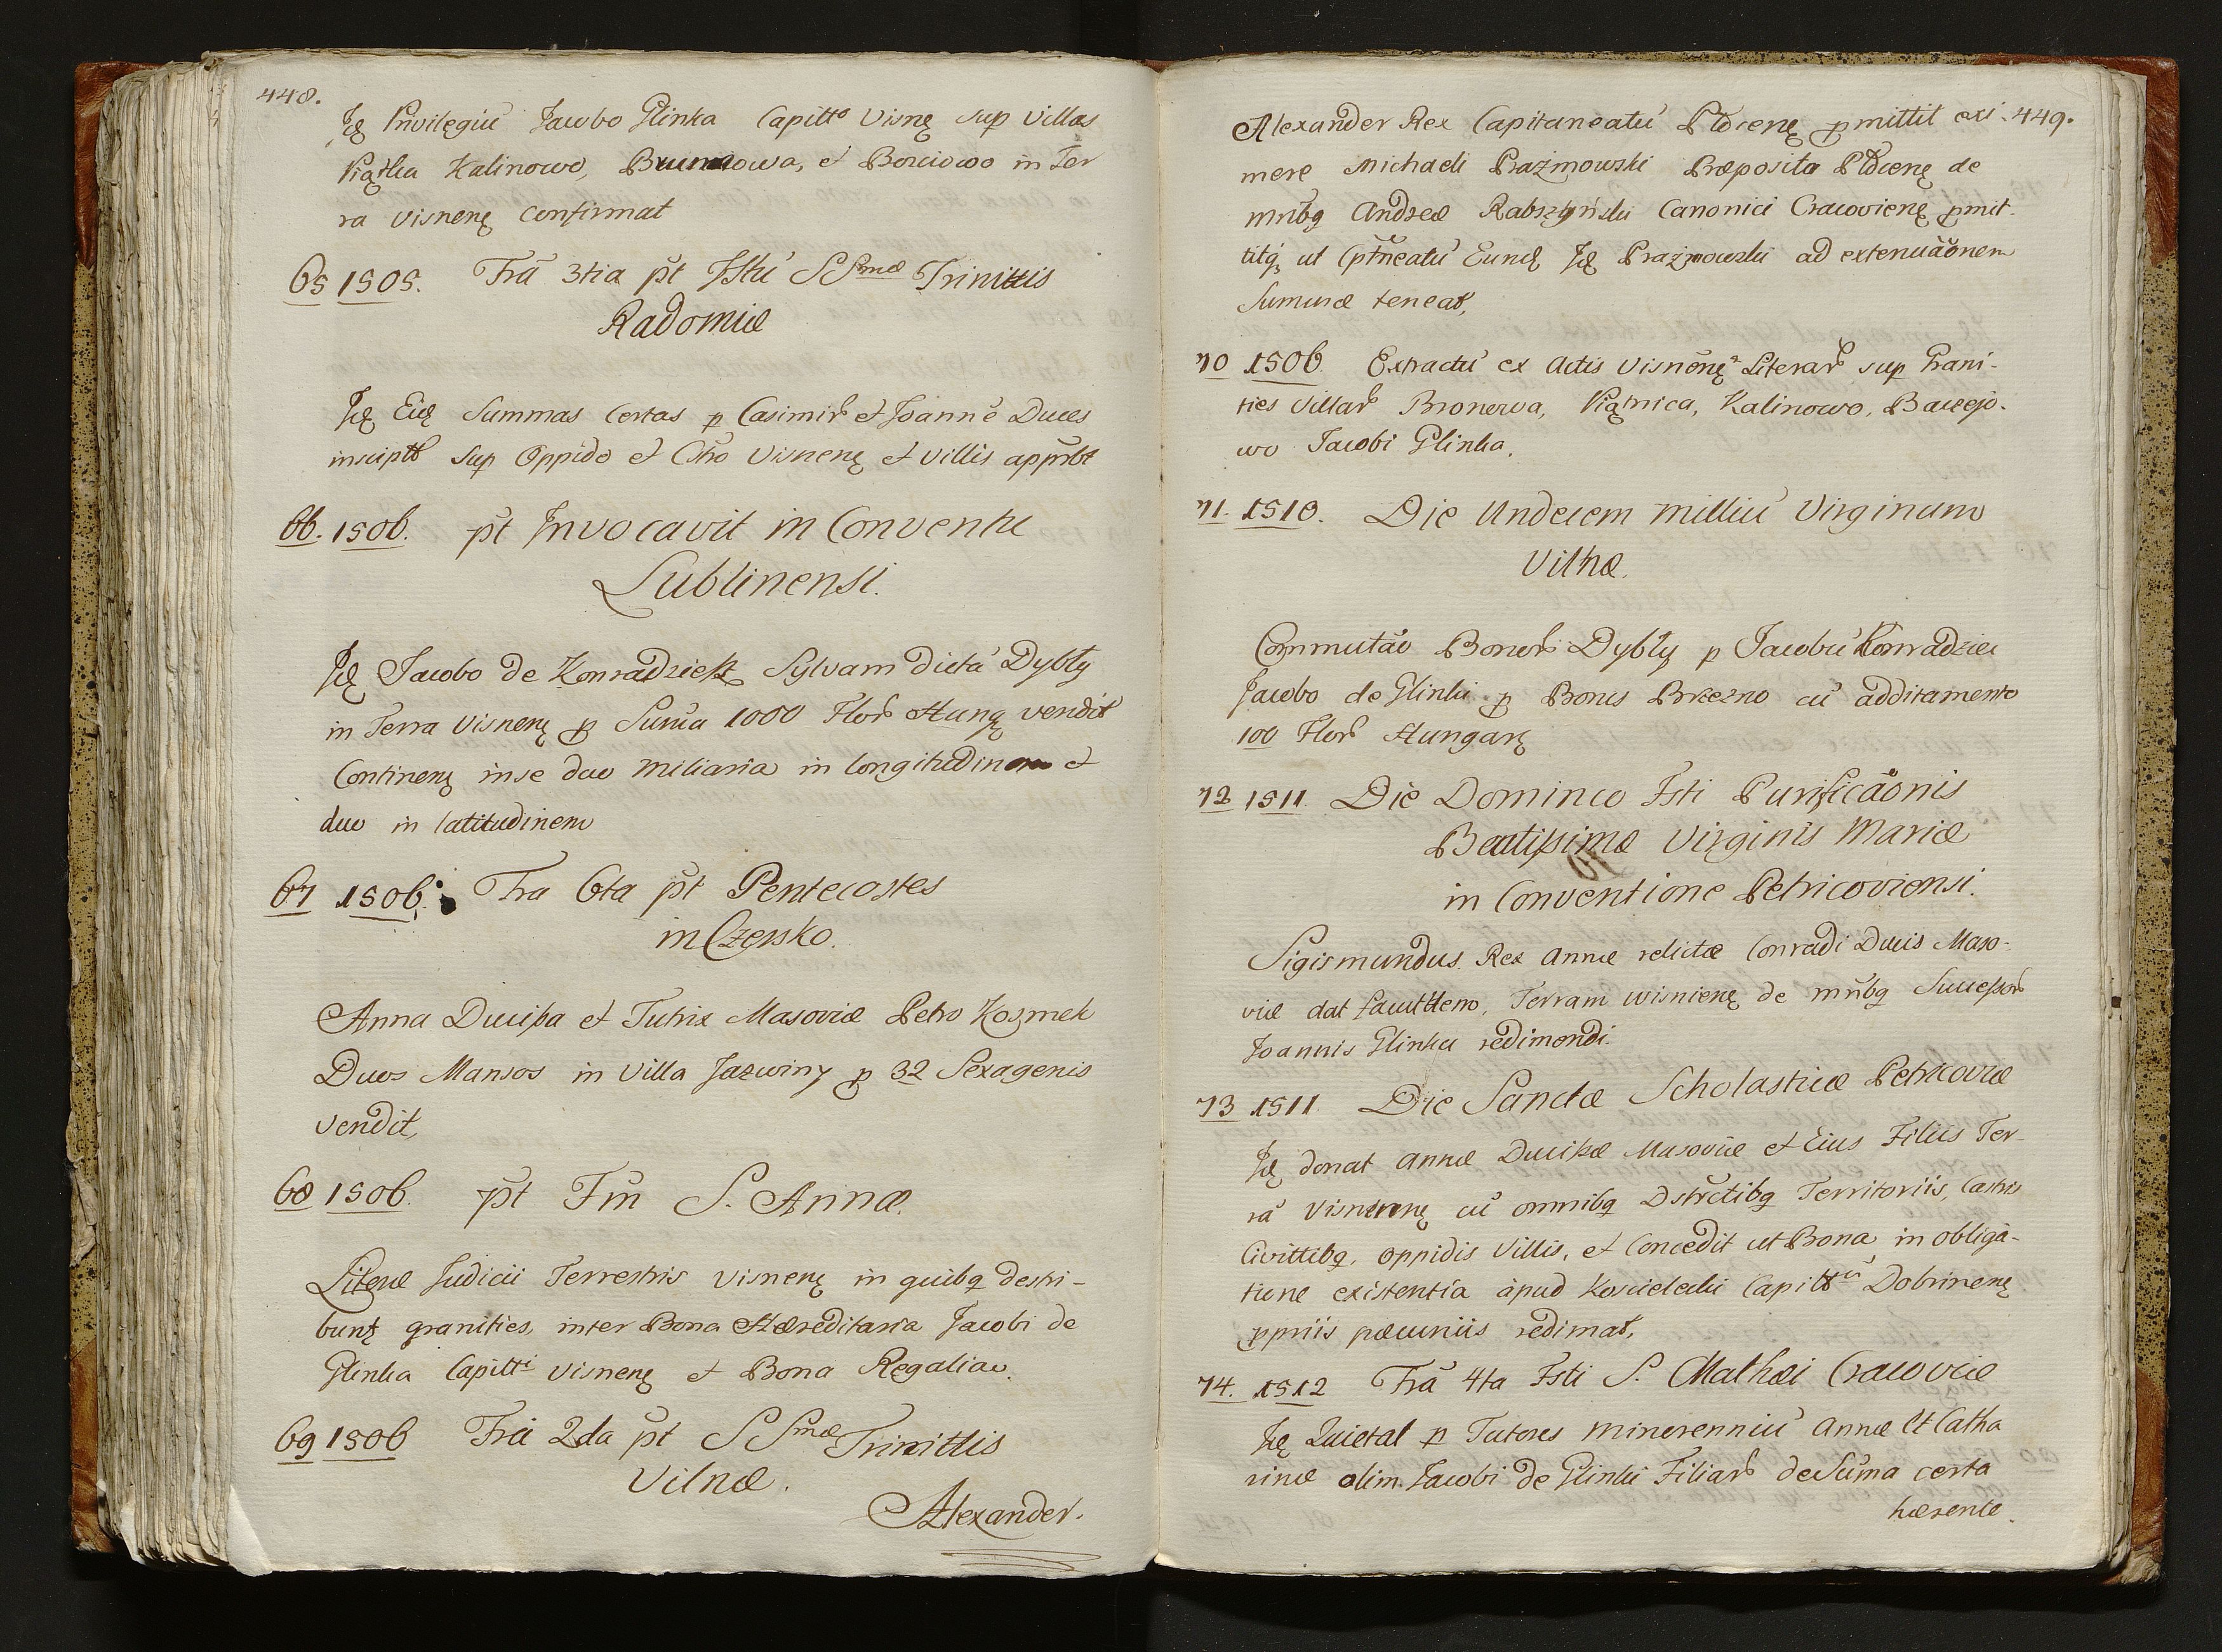 448.
Idę Privilęgiu Jacobo Glinka Capitto Visnę sup Villas
Piątka Kalinowo, Brunnowa, et Borciowo in Ter
ra Visnenę Confirmat
65 1505. Fra 3tia pt Fstu SSmæ Trinittis
Radomiæ
Idę Eidę Summas Certas p Casimir et Joanne Duces
inscipt sup Oppido et Cstro Visnenę et Villis apprbt
66. 1506. pt Invocavit in Conventu
Lublinensi.
Idę Jacobo de Konradziesz Sylvam dicta Dybły
in Terra Visnenę p Suma 1000 Flor Hungę vendit
Continenę in se duo Miliaria in longitudinem et
duo in latitudinem
67 1506. Fra 6ta pt Pentecostes
in Czersko.
Anna Ducissa et Tutrix Masoviæ Petro Kozmek
Duos Mansos in Villa Jazwiny p 32 Sexagenis
vendit,
68 1506. pt Fm S. Annæ.
Literæ Judicii Terrestris Visnenę in quibq destri-
buntę granities, inter Bona Hæreditaria Jacobi de
Glinka Capitti Visnenę et Bona Regalia.
69 1506 Fra 2da pt SSmæ Trinittis
Vilnæ.
Alexander.
449.
Alexander Rex Capitaneatu Płocenę pmittit exi-
mere Michaeli Prażmowski Præposito Płocenę de
mnibq Andreæ Rabsztyński Canonici Cracovienę pmit-
titq ut Cptneatu Eundę Idę Prazmowski ad extenuaonem
Summæ teneat,
70 1506. Extractu ex Actis Visnenę Literar sup Grani-
ties Villar Bronowa, Piątnica, Kalinowo, Baccejo-
wo Jacobi Glinka.
71. 1510. Die Undecem milliu Virginum
Vilnæ.
Commutao Bonor Dybły p Jacobu Konradziec
Jacobo de Glinki p Bonis Brzezno cu additamento
100 Flor Hungarę
72 1511. Die Dominico Fsti Purificaonis
Beatissimæ Virginis Mariæ
in Conventione Petricoviensi.
Sigismundus Rex Annæ relictæ Conradi Ducis Maso-
viæ dat facuttem, Terram wisnienę de mnibq Successor
Joannis Glinka redimendi.
73 1511. Die Sanctæ Scholasticæ Petricoviæ
Idę donat Annæ Ducissæ Masoviæ et Eius Filiis Ter-
ra Visnenę cu omnibq Dstrctibq Territoriis, Castris
Civittibq, Oppidis Villis, et Concedit ut Bona in obliga-
tione existentia apud Koscielecki Capittu Dobrinenę
ppriis pæcuniis redimat,
74. 1512 Fra 4ta Fsti S. Mathæi Cracoviæ
Idę Quietat p Tutores minorenniu Annæ et Catha
rinæ olim Jacobi de Glinki Filiar de Suma certa
hærente